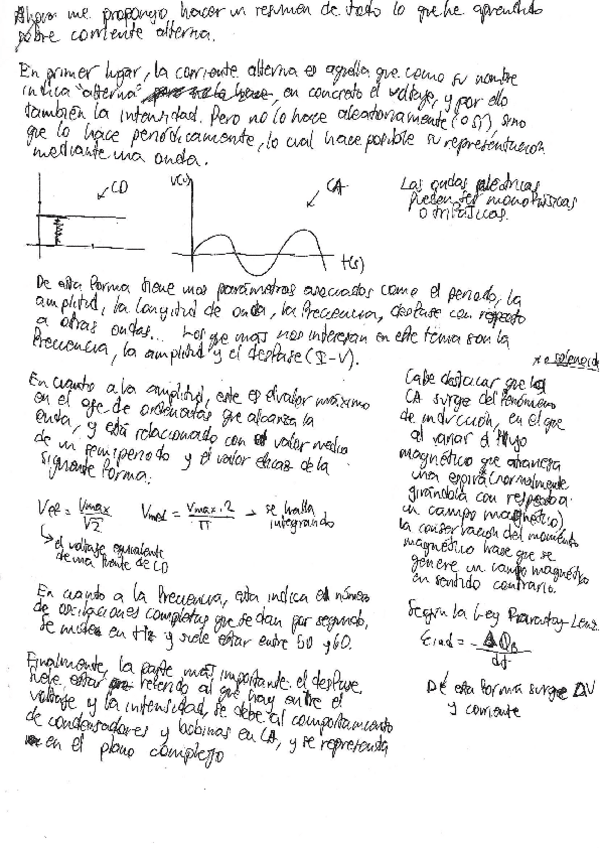 Ahora me propongo hacer un resumen de todo lo que he aprendido
sobre corriente alterna.
En primer lugar, la corriente alterna es aquella que como su nombre
indica "alterna", en concreto el voltaje, y por ello
también la intensidad. Pero no lo hace aleatoriamente, sino
que lo hace periódicamente, lo cual hace posible su representación
mediante una onda.
CD
V(v)
CA
t(s)
Las ondas eléctricas
pueden ser monofásicas
o trifásicas.
De esta forma tiene unos parámetros asociados como el periodo, la
amplitud, la longitud de onda, la frecuencia, desfase con respecto
a otras ondas... Los que más nos interesan en este tema son la
frecuencia, la amplitud y el desfase (I-V).
En cuanto a la amplitud, este es el valor máximo
en el eje de ordenadas que alcanza la
onda, y está relacionado con el valor medio
de un semiperiodo y el valor eficaz de la
siguiente forma:
Vef = Vmax/√2 Vmed = Vmax·2/π → se halla
integrando
↳ el voltaje equivalente
de una fuente de CD
En cuanto a la frecuencia, esta indica el número
de oscilaciones completas que se dan por segundo,
se mide en Hz y suele estar entre 50 y 60.
Finalmente, la parte más importante: el desfase,
suele estar referido al que hay entre el
voltaje y la intensidad, se debe al comportamiento
de condensadores y bobinas en CA, y se representa
en el plano complejo
* o solenoide
Cabe destacar que la
CA surge del fenómeno
de inducción, en el que
al variar el flujo
magnético que atraviesa
una espira* (normalmente
girándola con respecto a
un campo magnético),
la conservación del momento
magnético hace que se
genere un campo magnético
en sentido contrario.
Según la ley Faraday-Lenz
εind = -ΔΦB/dt
De esta forma surge ΔV
y corriente